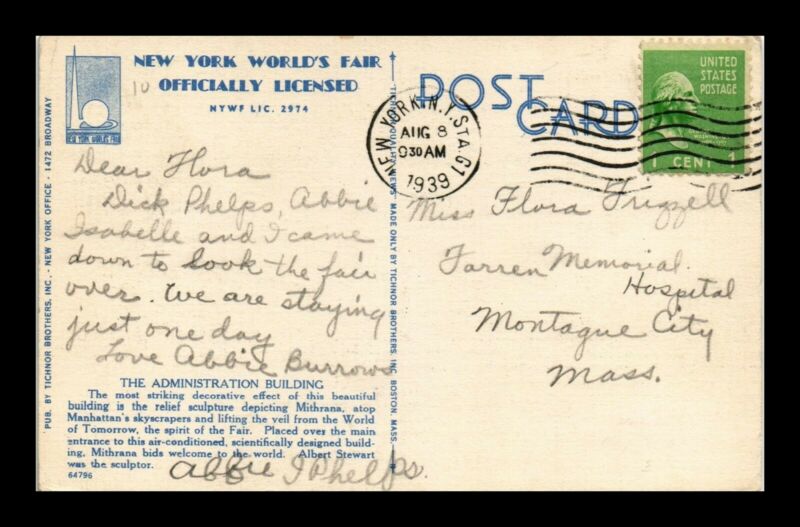 NEW YORK WORLD'S FAIR
OFFICIALLY LICENSED
NYWF LIC. 2974
10
NEW YORK WORLD'S FAIR
PUB. BY TICHNOR BROTHERS, INC. - NEW YORK OFFICE - 1472 BROADWAY
Dear Flora
Dick Phelps, Abbie
Isabelle and I came
down to look the fair
over. We are staying
just one day
Love Abbie Burrows
THE ADMINISTRATION BUILDING
The most striking decorative effect of this beautiful
building is the relief sculpture depicting Mithrana, atop
Manhattan's skyscrapers and lifting the veil from the World
of Tomorrow, the spirit of the Fair. Placed over the main
entrance to this air-conditioned, scientifically designed build-
ing, Mithrana bids welcome to the world. Albert Stewart
was the sculptor.
64796
Abbie I Phelps.
QUALITY VIEWS" MADE ONLY BY TICHNOR BROTHERS, INC. BOSTON, MASS.
POST
CARD
NEW YORK, N.Y. STA. G1
AUG 8
930 AM
1939
UNITED
STATES
POSTAGE
1 CENT 1
Miss Flora Frizzell
Farren Memorial
Hospital
Montague City
Mass.